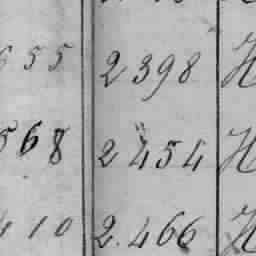 655 2398 H
568 2454 H
410 2.466 H